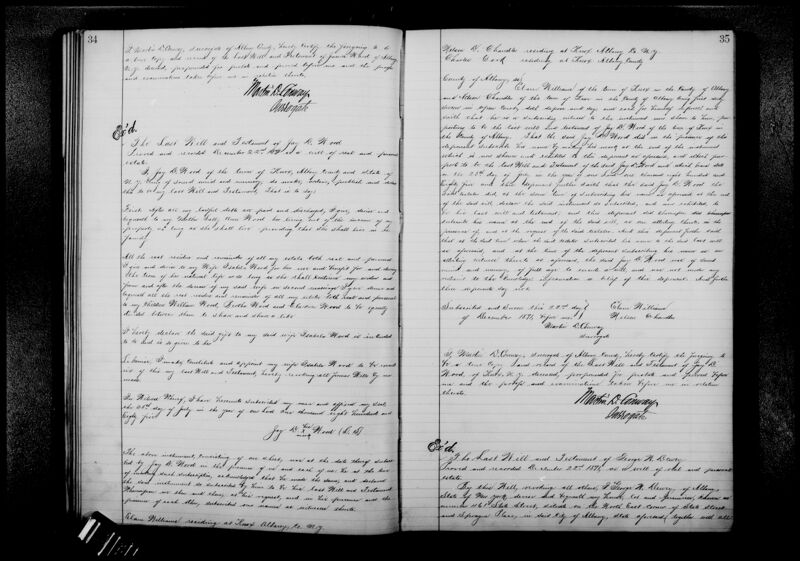 34
I, Martin D. Conway, Surrogate of Albany County, hereby certify the foregoing to be
a true copy and record of the Last Will and Testament of James Ward of Albany
N.Y. deceased, propounded for probate and proved before me and the proofs
and examinations taken before me in relation thereto.
Martin D. Conway
Surrogate
Ex'd.
The Last Will and Testament of Jay B. Wood
Proved and recorded December 22nd as a will of real and personal
estate.
I, Jay B. Wood of the town of Knox, Albany County and State of
N.Y. being of sound mind and memory, do make, ordain, publish and declare
this to be my Last Will and Testament, That is to say:
First after all my lawful debts are paid and discharged, I give, devise and
bequeath to my Wood her living out of the income of my
property as long as she shall live providing that she shall live in the
family
All the rest residue and remainder of all my estate both real and personal
I give and devise to my Wife Wood for her use and benefit for and during
the term of her natural life or as long as she shall my widow and
from and after the decease of my said wife or second marriage I give devise and
bequeath all the rest residue and remainder of all my estate both real and personal
to my children William Wood, Wood and Wood to be equally
divided between them to share and share alike
I hereby declare the said gift to my said wife Wood is intended
to be and is so given to her
Likewise, I make, constitute and appoint my wife Wood to be
of this my Last Will and Testament, hereby revoking all former Wills by me
made.
In Witness Whereof, I have hereunto subscribed my name and affixed my seal
the 28th day of July in the year of our Lord One thousand eight hundred and
eighty five
Jay B. his x mark Wood (L.S.)
The above instrument, consisting of one sheet, was at the date thereof
by Jay B. Wood in the presence of us and each of us; he at the time
of making such subscription, acknowledged that he made the same, and declared
the said instrument so subscribed by him to be his Last Will and Testament
Whereupon we then and there, at his request, and in his presence and the
presence of each other, subscribed our names as witnesses thereto.
Williams residing at Knox Albany, Co. N.Y.
35
Nelson Chandler residing at Knox, Albany Co. N.Y.
Charles Cook residing at Knox Albany County
County of Albany, ss:
Williams of the town of Knox in the County of Albany
and Nelson Chandler of the town of Knox in the County of Albany being first duly
sworn in open Court, did depose and say, and each for himself deposeth and
saith that he is a subscribing witness to the instrument now shown to him, pur-
porting to be the last will and testament of Jay B. Wood of the town of Knox in
the County of Albany. That the said Jay B. Wood did in the presence of this
deponent subscribe his name by making his mark at the end of the instrument
which is now shown and exhibited to this deponent as aforesaid, and which pur-
ports to be the last Will and Testament of the said Jay B. Wood and which bears date
on the 28th day of July in the year of our Lord one thousand eight hundred and
eighty five and this deponent further saith that the said Jay B. Wood the
said testator did, at the same time of subscribing his name as aforesaid at the end
of the said will, declare the said instrument so subscribed, and now exhibited, to
be his last will and testament; and this deponent did thereupon
subscribe his name at the end of the said will, as an attesting witness thereto, in the
presence of, and at the request of the said testator. And this deponent further saith
that at the said time when the said testator subscribed his name to the said last will
as aforesaid, and at the time of the deponent subscribing his name as an
attesting witness thereto as aforesaid, the said Jay B. Wood was of sound
mind and memory, of full age to execute a will, and was not under any
restraint to the knowledge, information or belief of this deponent. And further
this deponent say not.
Subscribed and sworn this 22nd day
of December 189, before me
Martin D. Conway
Surrogate
Williams
Nelson Chandler
I, Martin D. Conway, Surrogate of Albany County, hereby certify the foregoing to
be a true copy and record of the Last Will and Testament of Jay B.
Wood, of Knox, N.Y. deceased, propounded for probate and proved before
me and the proofs and examinations taken before me in relation
thereto.
Martin D. Conway
Surrogate
Ex'd.
The Last Will and Testament of George W.
Proved and recorded December 22nd 189, as a will of real and personal
estate.
By this Will, revoking all others, I George W. of Albany,
State of New York, devise and bequeath my house, lot and premises, known as
number State Street, situate on the North East corner of State Street
and Sprague Place, in said City of Albany, State aforesaid, together with all